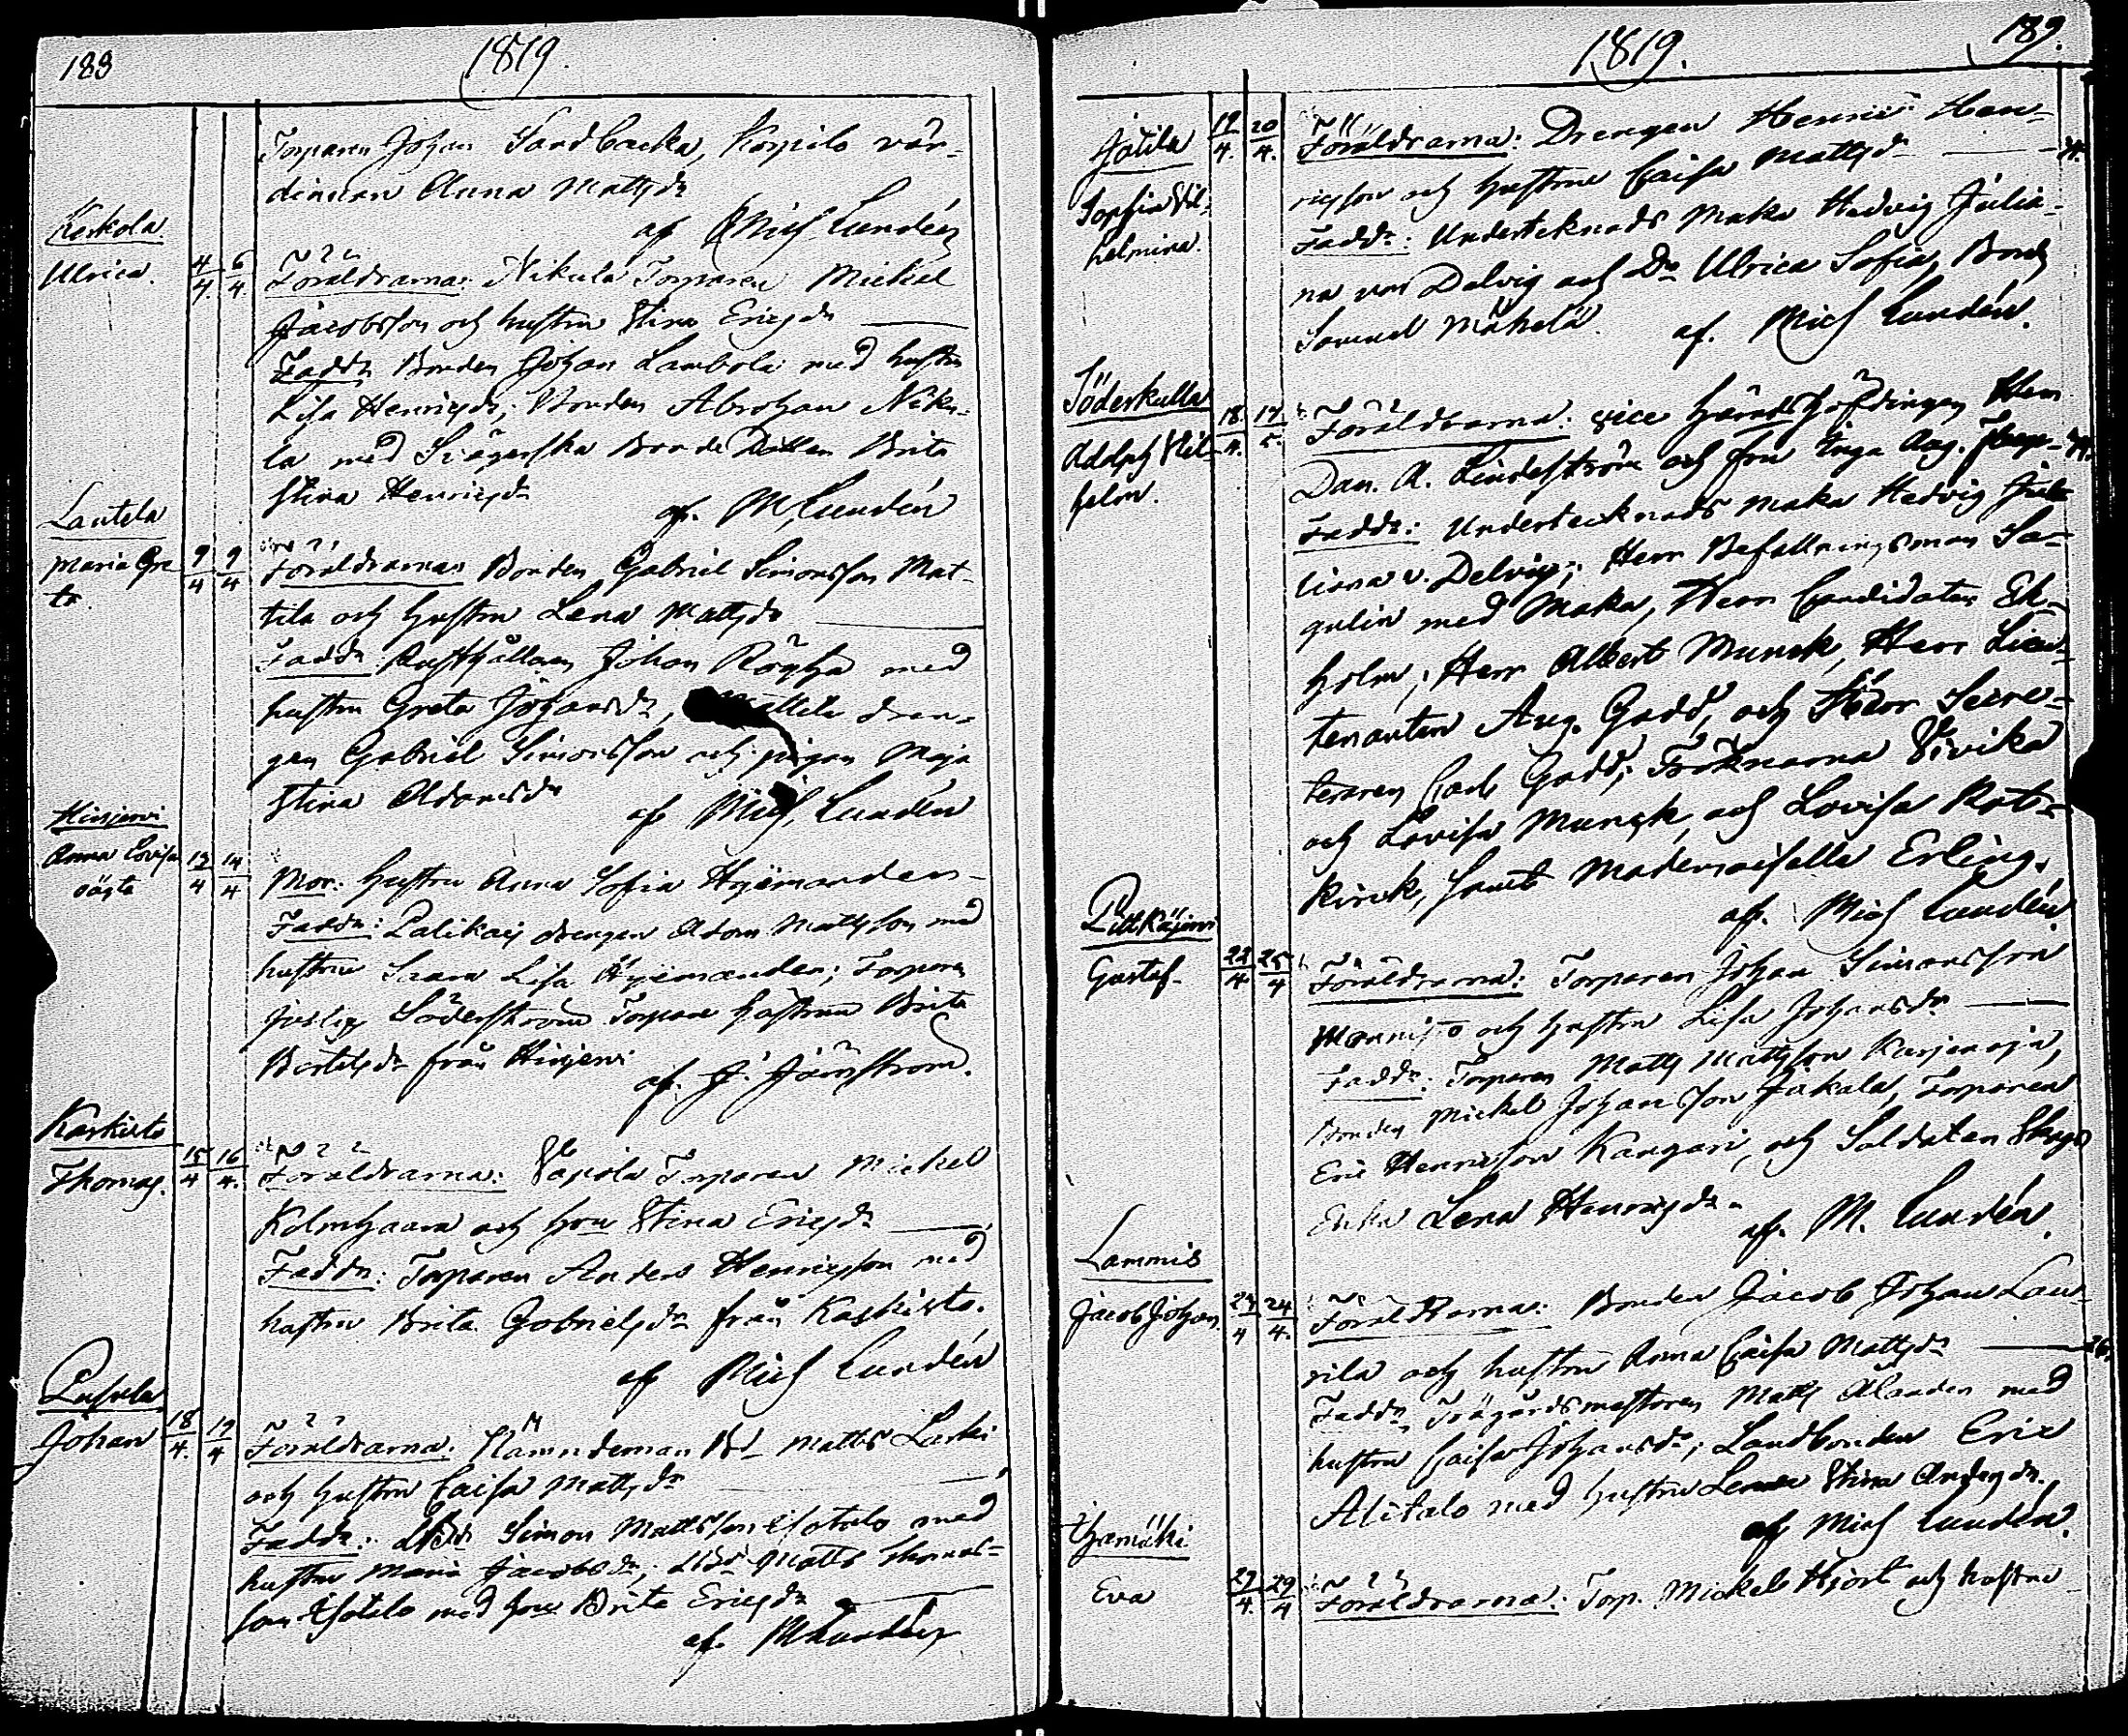 188
1819.
Torparen Johan Sandbacka, Korpilo vär-
dinnan Anna Mattsdr
af Mich Lundén
Koskola
Ulrica. 4/4. 6/4.
Föräldrarna: Nikula Torparen Mickel
Jacobsson och hustru Stina Ericsdr
Faddr Bonden Johan Lambola med hustru
Lisa Henricsdr, Bonden Abraham Niku-
la med Svägerska Bonde Dottern Brita
Stina Henricsdr
af. M, Lundén
Lautela
Maria Gre-
ta. 9/4 9/4
Föräldrarna: Bonden Gabriel Simonsson Mat-
tila och hustru Lena Mattsdr
Faddr: Rusthållaren Johan med
hustru Greta Johansdr, Mattila dren-
gen Gabriel Simonsson och pigan Maja
Stina Adamsdr
af Mich, Lundén
Hirsjervi
Anna Lovisa
oägta 13/4 14/4
Mor: hustru Anna Sofia
Faddr: Palikais drengen Adam Mattsson med
hustru Saara Lisa Torparen
Söderström Torpare hustrun Brita
Bertilsdr från Hirsjervi
af. J. Järnström.
Kaskisto
Thomas. 15/4 16/4.
Föräldrarna: Torparen Mickel
Kolmhaara och hru Stina Ericsdr
Faddr: Torparen Anders Henricsson med
hustru Brita Gabrielsdr från Kaskisto.
af Mich Lundén
Pusula
Johan 18/4. 19/4
Föräldrarna: Nämndeman Bd Matts Larki
och hustru Caisa Mattsdr
Faddr: Simon Mattsson Isotalo med
hustru Maria Jacobsdr; Matts Thomas-
son Isotalo med hru Brita Ericsdr
af. M Lundén
189.
1819.
Jotila
Sophia Vil-
helmina. 19/4. 20/4.
Föräldrarna: Drengen Henric Hen-
ricsson och hustru Caisa Mattsdr
Faddr: Undertecknads Maka Hedvig Julia-
na von Delvig och Dr Ulrica Sofia, Bond
Samuel Mäkelä. af. Mich Lundén.
Söderkulla
Adolph Vil-
helm. 18/4. 17/5.
Föräldrarna: vice Häradshöfdingen Herr
Dan. A. Lindeström och fru Inga Aug.
Faddr: Undertecknads Maka Hedvig Ju-
liana v. Delvig; Herr Befallningsman Sa-
gulin med Maka, Herr Candidaten Ek-
holm, Herr Albert Munck, Herr Lieu-
tenanten Aug. Gadd, och Herr Secre-
teraren Carl Gadd; Fröknarna Vivika
och Lovisa Munck, och Lovisa Rot-
kirck, samt Mademoiselle Erling.
af. Mich Lundén
Pitkäjervi
Gustaf. 22/4. 25/4
Föräldrarna: Torparen Johan Simonsson
Mannisto och hustru Lisa Johansdr
Faddr: Torparen Matts Mattsson
Bonden Mickel Johansson Jakala, Torparen
Eric Henricsson Kangari, och Soldaten
Enka Lena Henricsdr
af. M. Lundén.
Lammis
Jacob Johan. 24/4 24/4.
Föräldrarna: Bonden Jacob Johan Lau-
rila och hustru Anna Caisa Mattsdr
Faddr Trägårdsmästaren Matts Alanden med
hustru Caisa Johansdr; Landbonden Eric
Alitalo med hustru Lena Stina Andersdr.
af Mich Lundén.
Ojamäki
Eva 27/4. 29/4
Föräldrarna: Torp. Mickel Hjort och hustru